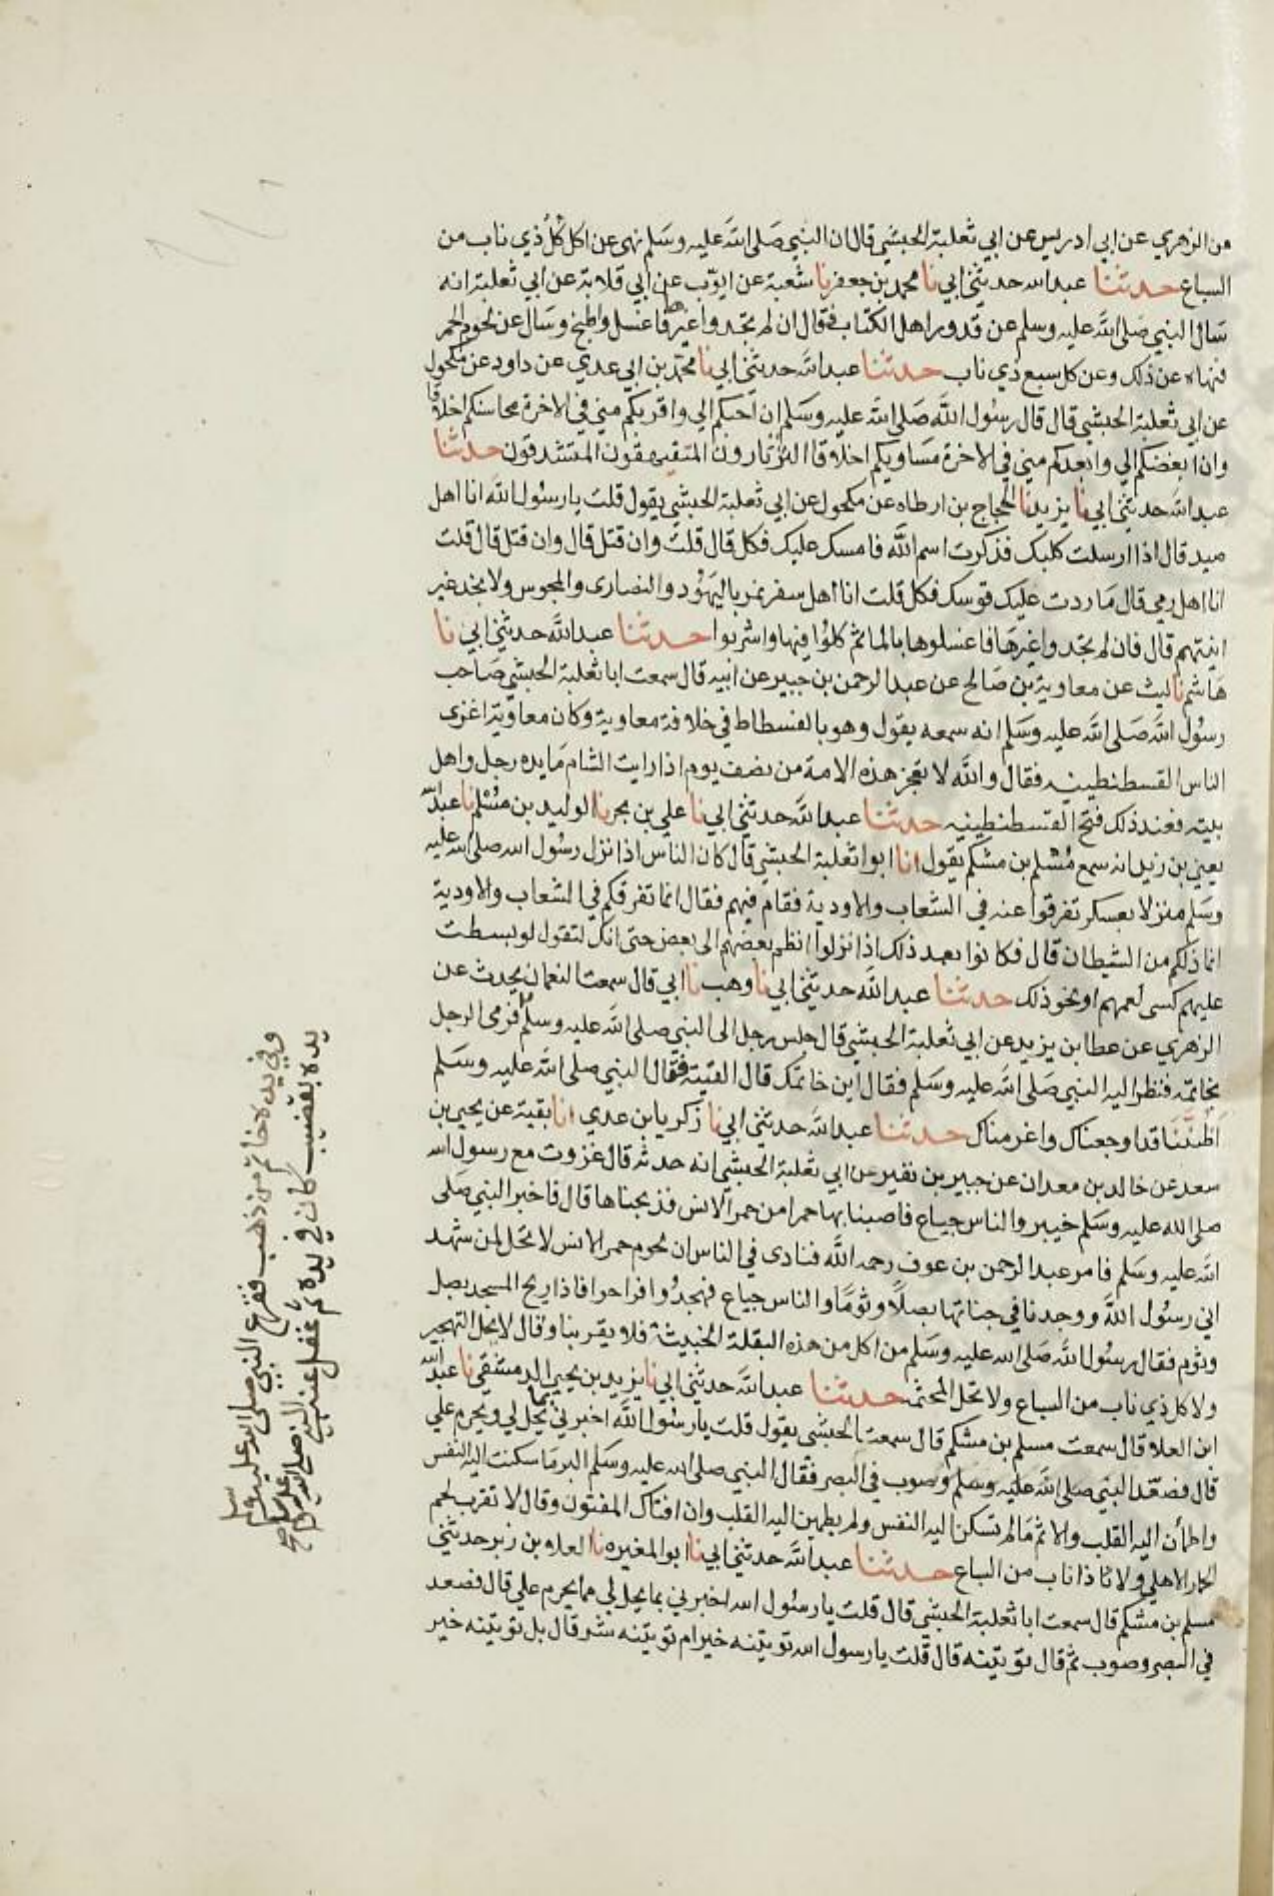 من الزهري عن ابي ادريس عن ابي ثعلبة الحبشي قال ان النبي صلى الله عليه وسلم نهى عن اكل كل ذي ناب من
السباع حدثنا عبد الله حدثني ابي نا محمد بن جعفر نا شعبة عن ايوب عن ابي قلابة عن ابي ثعلبة انه
سال النبي صلى الله عليه وسلم عن قدور اهل الكتاب فقال ان لم تجدوا غيرها فاغسل واطبخ وسال عن لحوم الحمر
فنهاه عن ذلك وعن كل سبع ذي ناب حدثنا عبد الله حدثني ابي نا محمد بن ابي عدي عن داود عن مكحول
عن ابي ثعلبة الحبشي قال قال رسول الله صلى الله عليه وسلم ان احبكم الي واقربكم مني في الاخرة محاسنكم اخلاقا
وان ابغضكم الي وابعدكم مني في الاخرة مساويكم اخلاقا الثرثارون المتفيهقون المتشدقون حدثنا
عبد الله حدثني ابي نا يزيد نا الحجاج بن ارطاه عن مكحول عن ابي ثعلبة الحبشي يقول قلت يا رسول الله انا اهل
صيد قال اذا ارسلت كلبك فذكرت اسم الله فامسك عليك فكل قال قلت وان قتل قال وان قتل قال قلت
انا اهل رمي قال ما ردت عليك قوسك فكل قلت انا اهل سفر نمر باليهود والنصارى والمجوس ولا نجد غير
انيتهم قال فان لم تجدوا غيرها فاغسلوها بالما ثم كلوا فيها واشربوا حدثنا عبد الله حدثني ابي نا
هاشم نا ليث عن معاوية بن صالح عن عبد الرحمن بن جبير عن ابيه قال سمعت ابا ثعلبة الحبشي صاحب
رسول الله صلى الله عليه وسلم انه سمعه يقول وهو بالفسطاط في خلافة معاوية وكان معاوية اغزى
الناس القسطنطينيه فقال والله لا تعجز هذه الامة من نصف يوم اذا رايت الشام مايده رجل واهل
بيته فعند ذلك فتح القسطنطينيه حدثنا عبد الله حدثني ابي نا علي بن بحر نا الوليد بن مسلم نا عبد الله
يعني بن زيد انه سمع مسلم بن مشكم يقول انا ابوا ثعلبة الحبشي قال كان الناس اذا نزل رسول الله صلى الله عليه
وسلم منزلا بعسكر تفرقوا عنه في الشعاب والاودية فقام فيهم فقال انما تفرقكم في الشعاب والاودية
انما ذلكم من الشيطان قال فكانوا بعد ذلك اذا نزلوا انظم بعضهم الى بعض حتى انك لتقول لو بسطت
عليهم كسى لعمهم او نحو ذلك حدثنا عبد الله حدثني ابي نا وهب نا ابي قال سمعت النعمان يحدث عن
الزهري عن عطا بن يزيد عن ابي ثعلبة الحبشي قال جلس رجل الى النبي صلى الله عليه وسلم فرمى الرجل
بخاتمه فنظر اليه النبي صلى الله عليه وسلم فقال اين خاتمك قال القيته فقال النبي صلى الله عليه وسلم
اظننا قد اوجعناك واغرمناك حدثنا عبد الله حدثني ابي نا زكريا بن عدي انا بقية عن يحيى بن
سعد عن خالد بن معدان عن جبير بن نفير عن ابي ثعلبة الحبشي انه حدثه قال غزوت مع رسول الله
صلى الله عليه وسلم خيبر والناس جياع فاصبنا بها حمرا من حمر الانس فذبحناها قال فاخبر النبي صلى
الله عليه وسلم فامر عبد الرحمن بن عوف رحمه الله فنادى في الناس ان لحوم حمر الانس لا تحل لمن شهد
اني رسول الله ووجدنا في جناتها بصلا وثوما والناس جياع فجهدوا فراحوا فاذا ريح المسجد بصل
وثوم فقال رسول الله صلى الله عليه وسلم من اكل من هذه البقلة الخبيثة فلا يقربنا وقال لا تحل
ولا كل ذي ناب من السباع ولا تحل المجثمه حدثنا عبد الله حدثني ابي نا يزيد بن يحيى الدمشقي نا عبد الله
ابن العلا قال سمعت مسلم بن مشكم قال سمعت الحبشي يقول قلت يا رسول الله اخبرني بما يحل لي ويحرم علي
قال فصعد النبي صلى الله عليه وسلم وصوب في البصر فقال النبي صلى الله عليه وسلم البر ما سكنت اليه النفس
واطمأن اليه القلب والاثم ما لم تسكن اليه النفس ولم يطمين اليه القلب وان افتاك المفتون وقال لا تقرب لحم
الحمار الاهلي ولا ذا ناب من السباع حدثنا عبد الله حدثني ابي نا ابو المغيره نا العلاء بن زبر حدثني
مسلم بن مشكم قال سمعت ابا ثعلبة الحبشي قال قلت يا رسول الله اخبرني بما يحل لي مما يحرم علي قال فصعد
في البصر وصوب ثم قال نويتنه قال قلت يا رسول الله نويتنه خير ام نويتنه شر قال بل نويتنه خير
وفي يده خاتم من ذهب فقرع النبي صلى الله عليه وسلم
يده بقضيب كان في يده ثم غفل عنه النبي صلى الله عليه وسلم صح